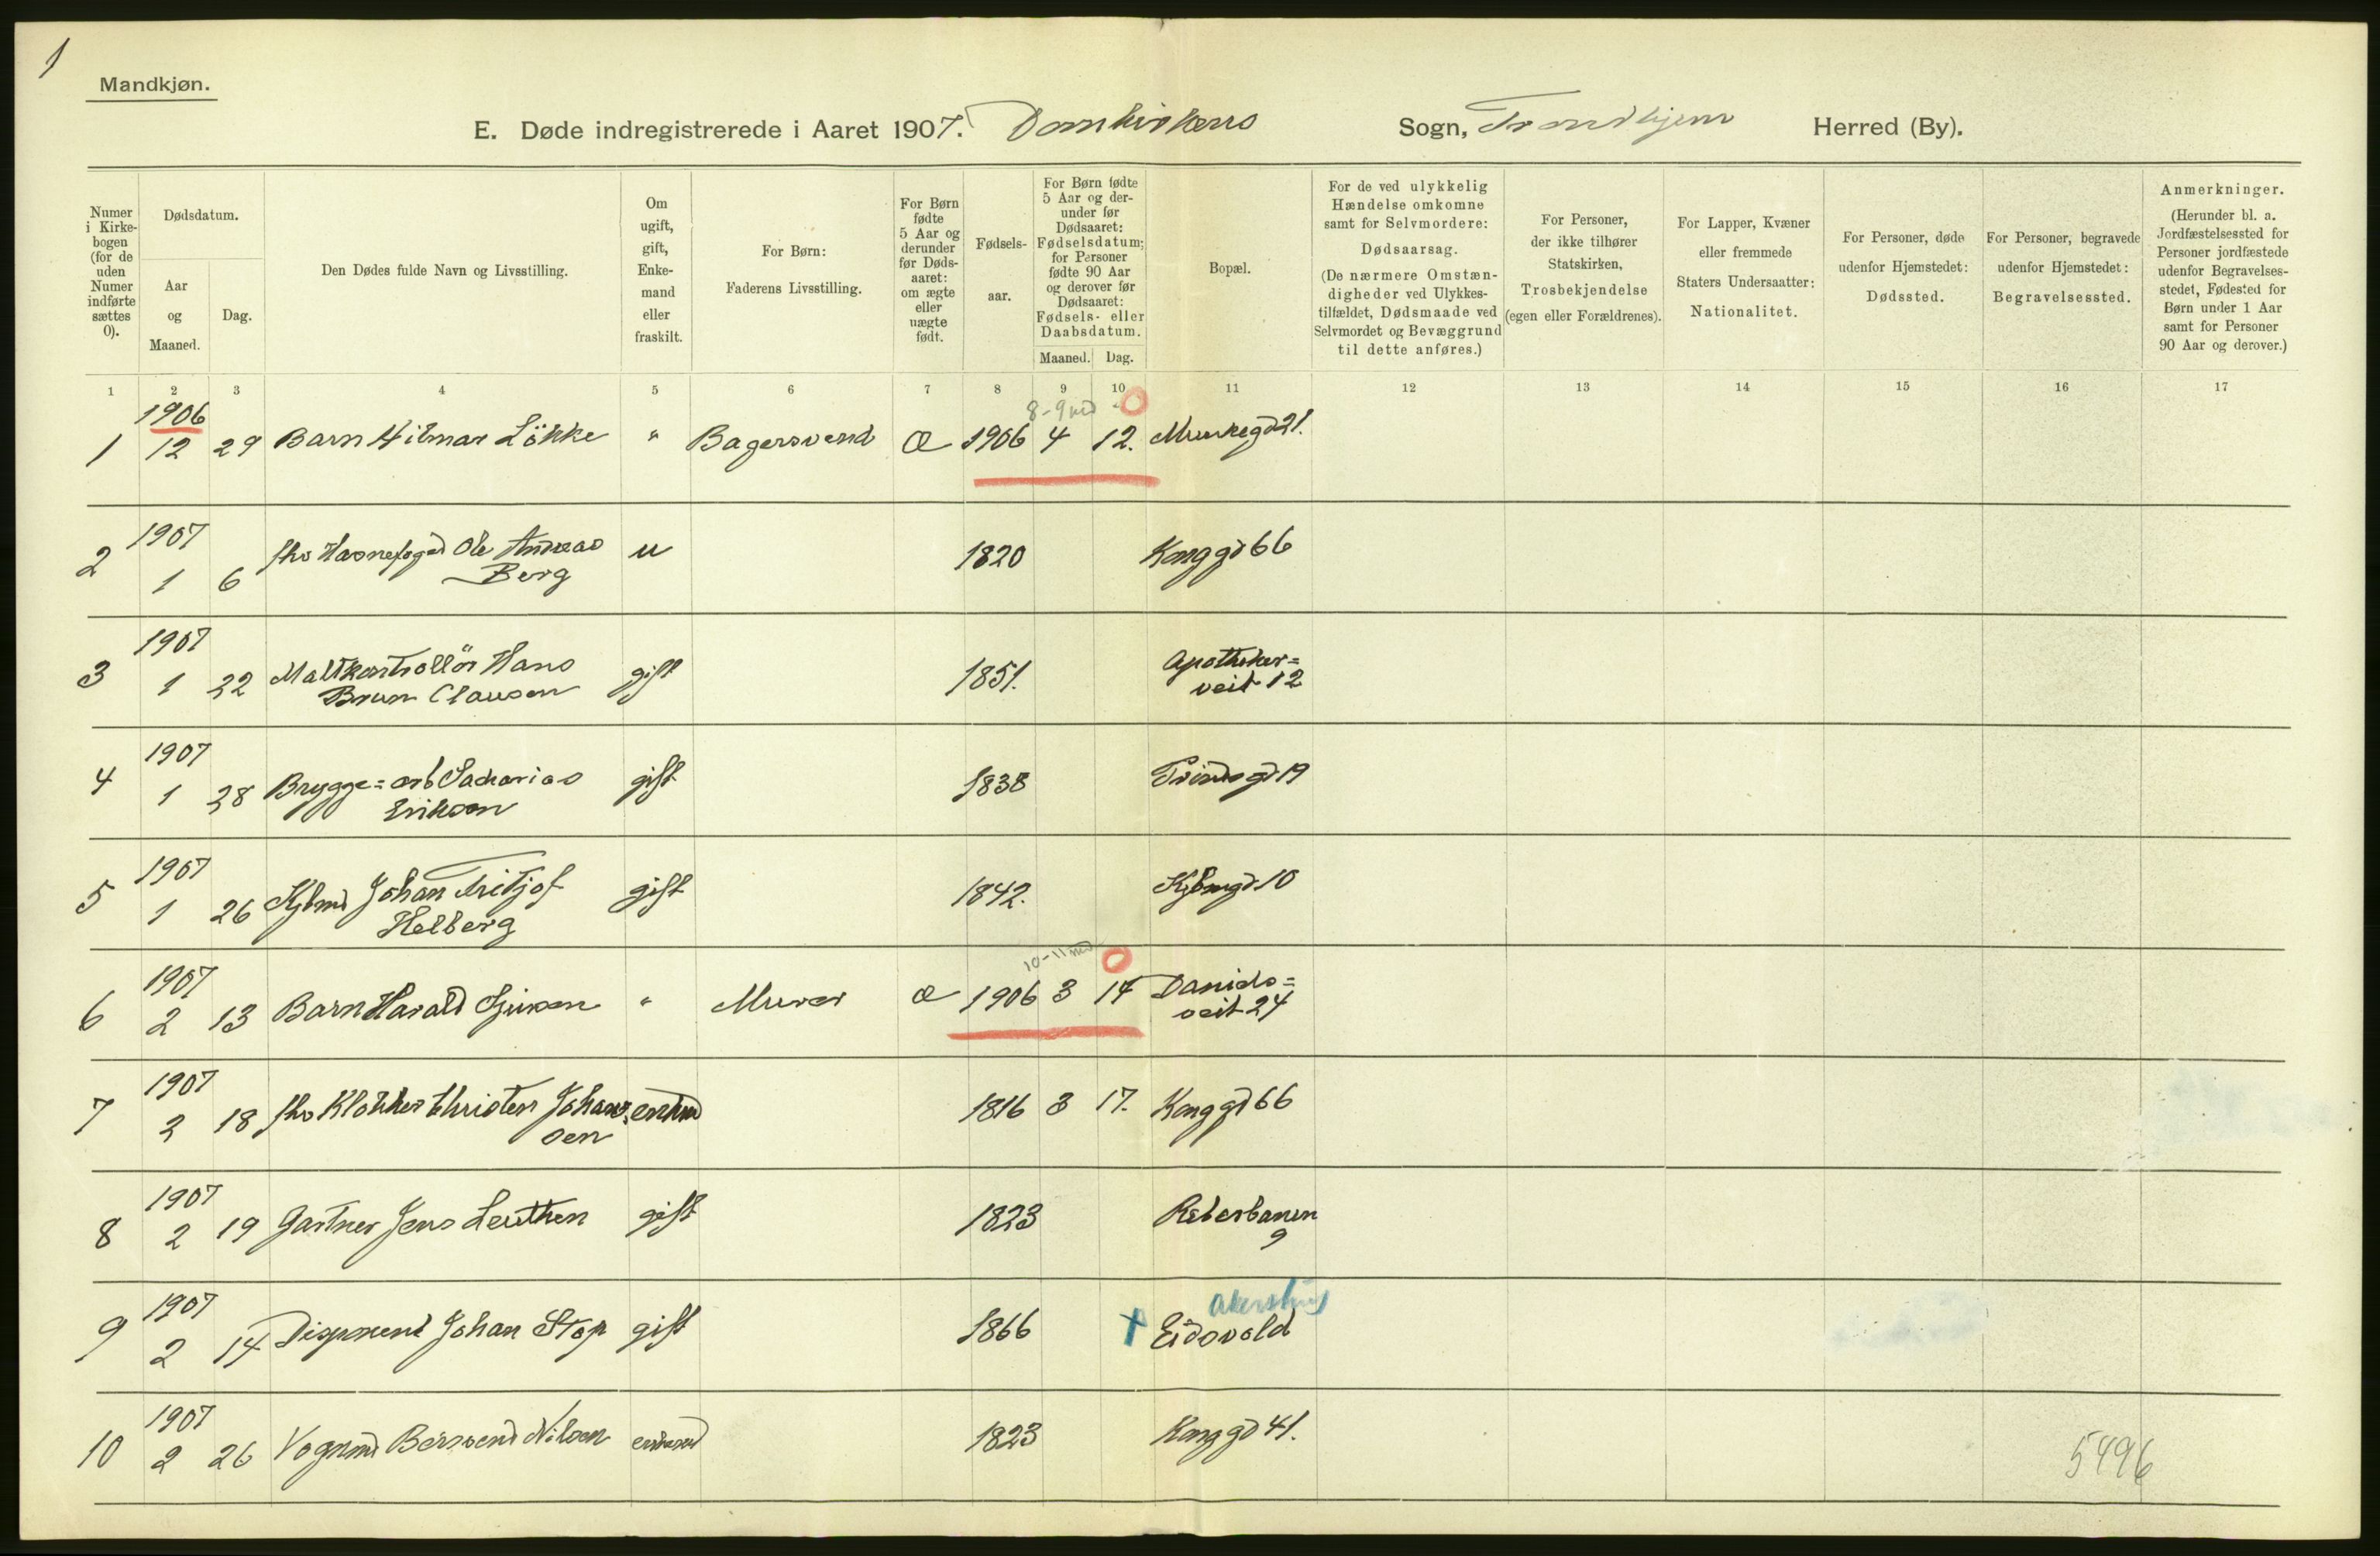 1
Mandkjøn.
E. Døde indregistrerede i Aaret 1907. Domkirkens Sogn, Trondhjem Herred (By).
Numer i Kirkebogen (for de uden Numer indførte sættes 0).
Dødsdatum.
Aar og Maaned.
Dag.
Den Dødes fulde Navn og Livsstilling.
Om ugift, gift, Enkemand eller fraskilt.
For Børn: Faderens Livsstilling.
For Børn fødte 5 Aar og derunder før Dødsaaret: om ægte eller uægte født.
Fødselsaar.
For Børn fødte 5 Aar og derunder før Dødsaaret: Fødselsdatum; for Personer fødte 90 Aar og derover før Dødsaaret: Fødsels- eller Daabsdatum.
Maaned. Dag.
Bopæl.
For de ved ulykkelig Hændelse omkomne samt for Selvmordere: Dødsaarsag. (De nærmere Omstændigheder ved Ulykkestilfældet, Dødsmaade ved Selvmordet og Bevæggrund til dette anføres.)
For Personer, der ikke tilhører Statskirken, Trosbekjendelse (egen eller Forældrenes).
For Lapper, Kvæner eller fremmede Staters Undersaatter: Nationalitet.
For Personer, døde udenfor Hjemstedet: Dødssted.
For Personer, begravede udenfor Hjemstedet: Begravelsessted.
Anmerkninger. (Herunder bl. a. Jordfæstelsessted for Personer jordfæstede udenfor Begravelsesstedet, Fødested for Børn under 1 Aar samt for Personer 90 Aar og derover.)
1 2 3 4 5 6 7 8 9 10 11 12 13 14 15 16 17
1906 8-9 md 0
1 12 29 Barn Hilmar Lökke " Bagersvend Æ 1906 4 12. Munkegd 21.
1907
2 1 6 fhv Havnefoged Ole Andreas Berg u 1820 Konggd 66
1907
3 1 22 Maltkontrollör Hans Brun Clausen gift 1851. Apotheker=veit 12
1907
4 1 28 Brygge=arb Sacharias Eriksen gift 1838 Prindsgd 19
1907
5 1 26 Kjbmd Johan Fritjof Helberg gift 1842. Kjbmgd 10
1907 10-11 md 0
6 2 13 Barn Harald " Murer Æ 1906 3 14 Daniels=veit 24
1907
7 2 18 fhv Klokker Christen Johansen enkmd 1816 3 17. Konggd 66
1907
8 2 19 Gartner Jens Leuthen gift 1823 Reberbanen 9
1907 Akershus
9 2 14 Disponent Johan Stop gift 1866 † Eidsvold
1907
10 2 26 Vognmd Berssvend Nilsen enkemd 1823 Konggd 41.
5496